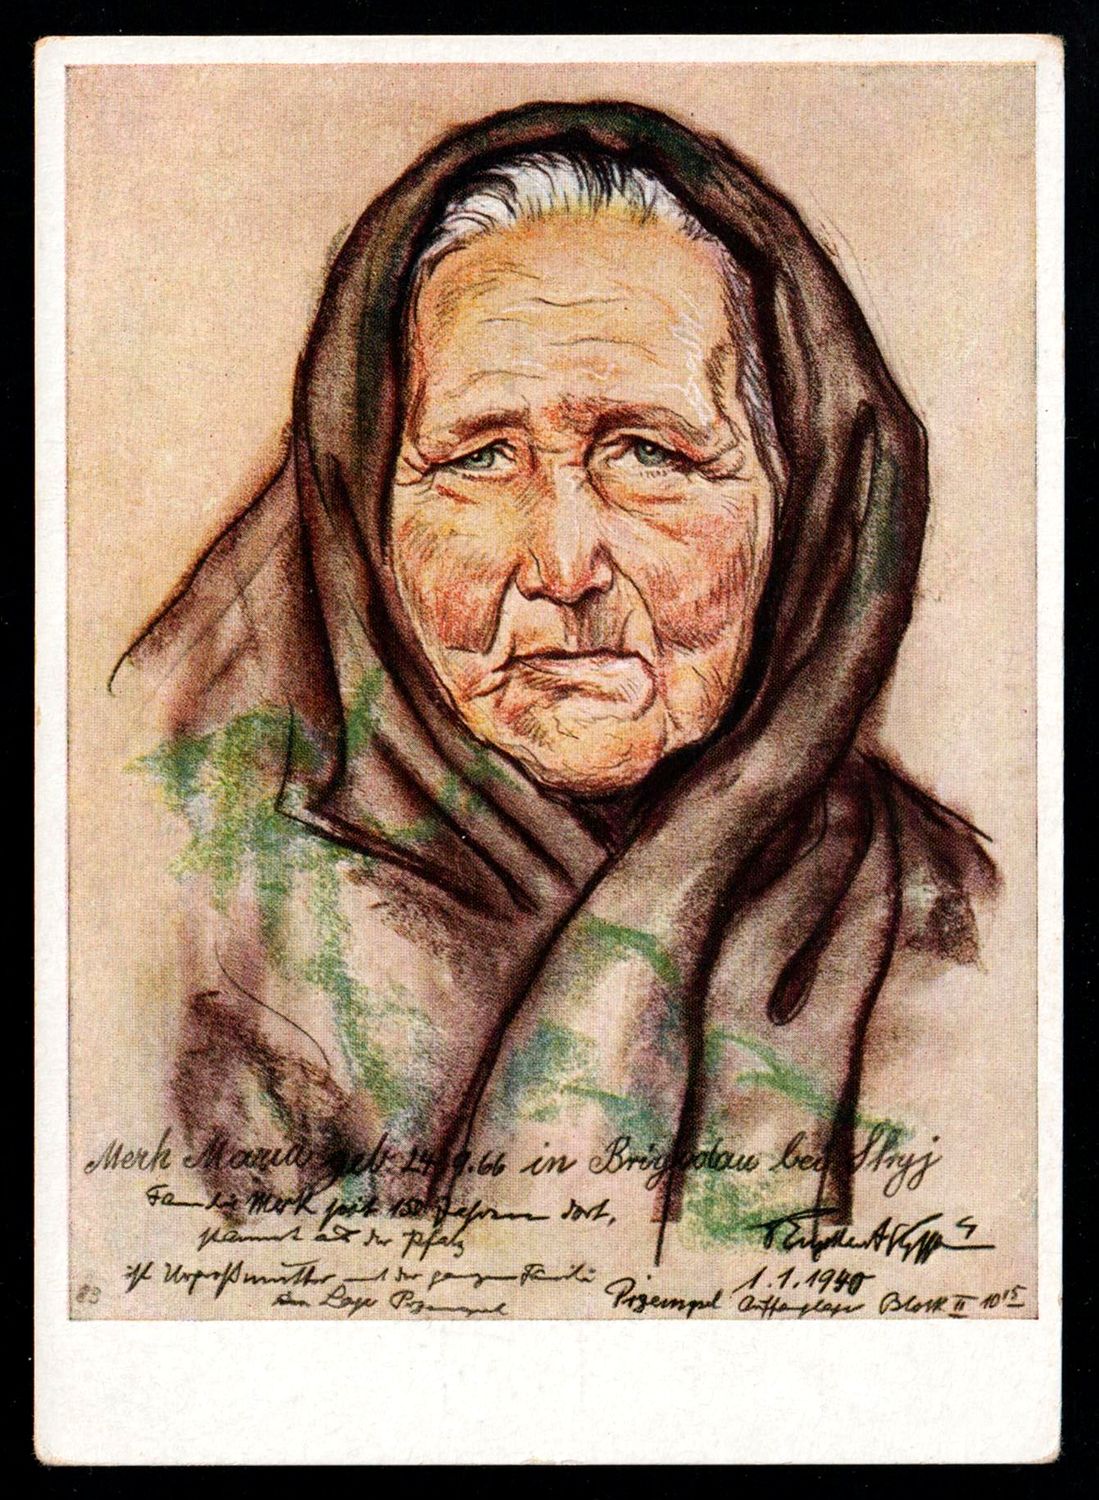 Merk Maria geb 24.9.66 in Brigidau bei Stryj
Familie Merk seit 150 Jahren dort,
stammt aus der Pfalz
ist Urgroßmutter mit der ganzen Familie
im Lager Przempel
Przempel 1.1.1940
Auffanglager Block II 10¹⁵
83